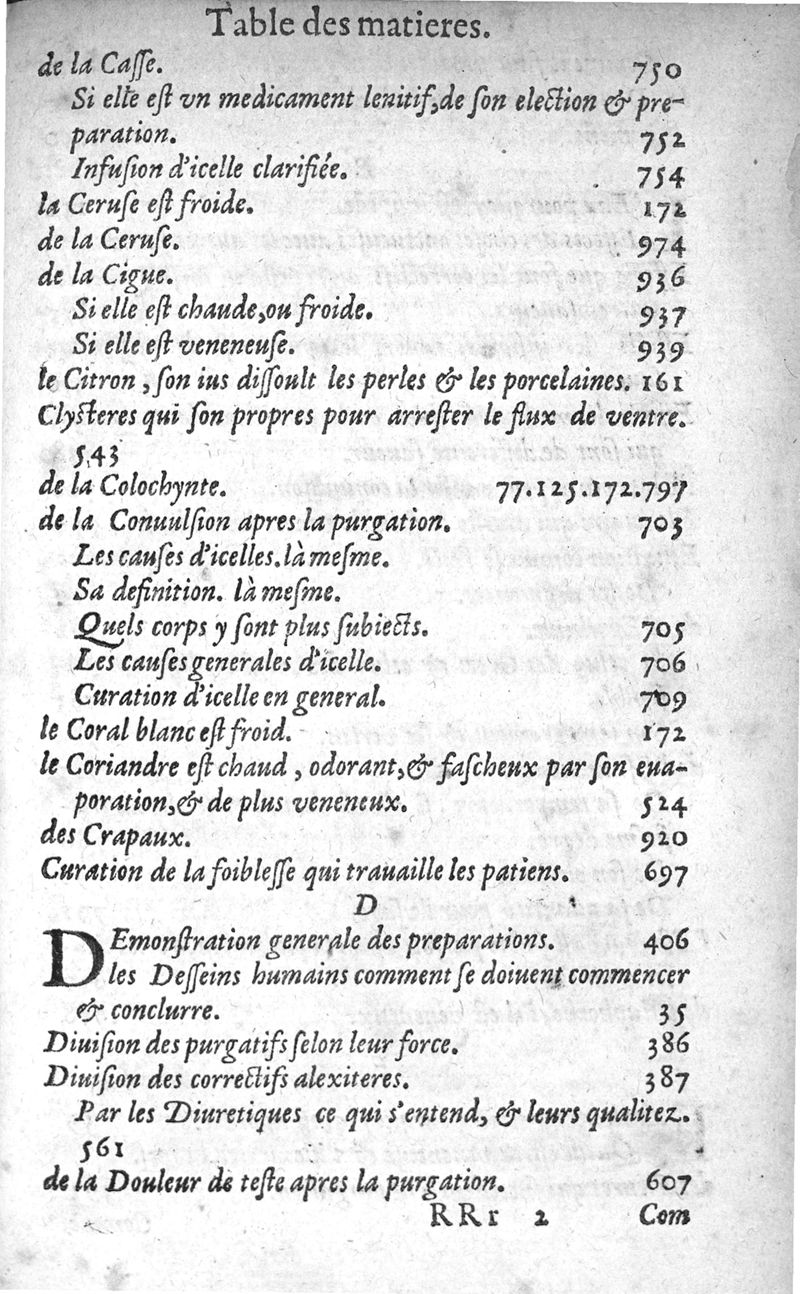 Table des matieres.
de la Caſſe. 750
Si elle eſt vn medicament lenitif,de ſon election & pre-
paration. 752
Infuſion d'icelle clarifiée. 754
la Ceruſe eſt froide. 172
de la Ceruſe. 974
de la Cigue. 936
Si elle eſt chaude,ou froide. 937
Si elle eſt veneneuſe. 939
le Citron , ſon ius diſſoult les perles & les porcelaines. 161
Clyſteres qui ſon propres pour arreſter le flux de ventre.
543
de la Colochynte. 77.125.172.797
de la Conuulſion apres la purgation. 703
Les cauſes d'icelles.là meſme.
Sa definition. là meſme.
Quels corps y ſont plus ſubiects. 705
Les cauſes generales d'icelle. 706
Curation d'icelle en general. 709
le Coral blanc eſt froid. 172
le Coriandre eſt chaud , odorant,& faſcheux par ſon eua-
poration,& de plus veneneux. 524
des Crapaux. 920
Curation de la foibleſſe qui trauaille les patiens. 697
D
DEmonſtration generale des preparations. 406
les Deſſeins humains comment ſe doiuent commencer
& conclurre. 35
Diuiſion des purgatifs ſelon leur force. 386
Diuiſion des correctifs alexiteres. 387
Par les Diuretiques ce qui s'entend, & leurs qualitez.
561
de la Douleur de teſte apres la purgation. 607
RRr 2 Com